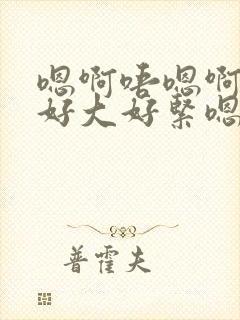 嗯啊唔嗯啊
好大好紧嗯
普霍夫